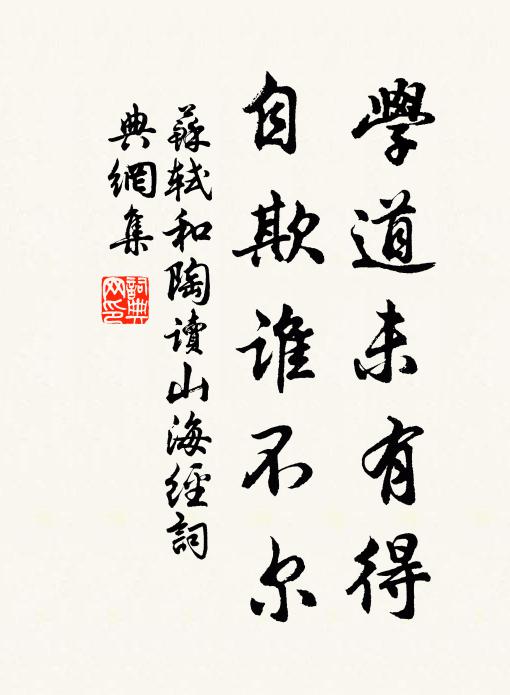 學道未有得
自欺誰不尔
蘇軾和陶讀山海經詞
典網集
詞典
网印